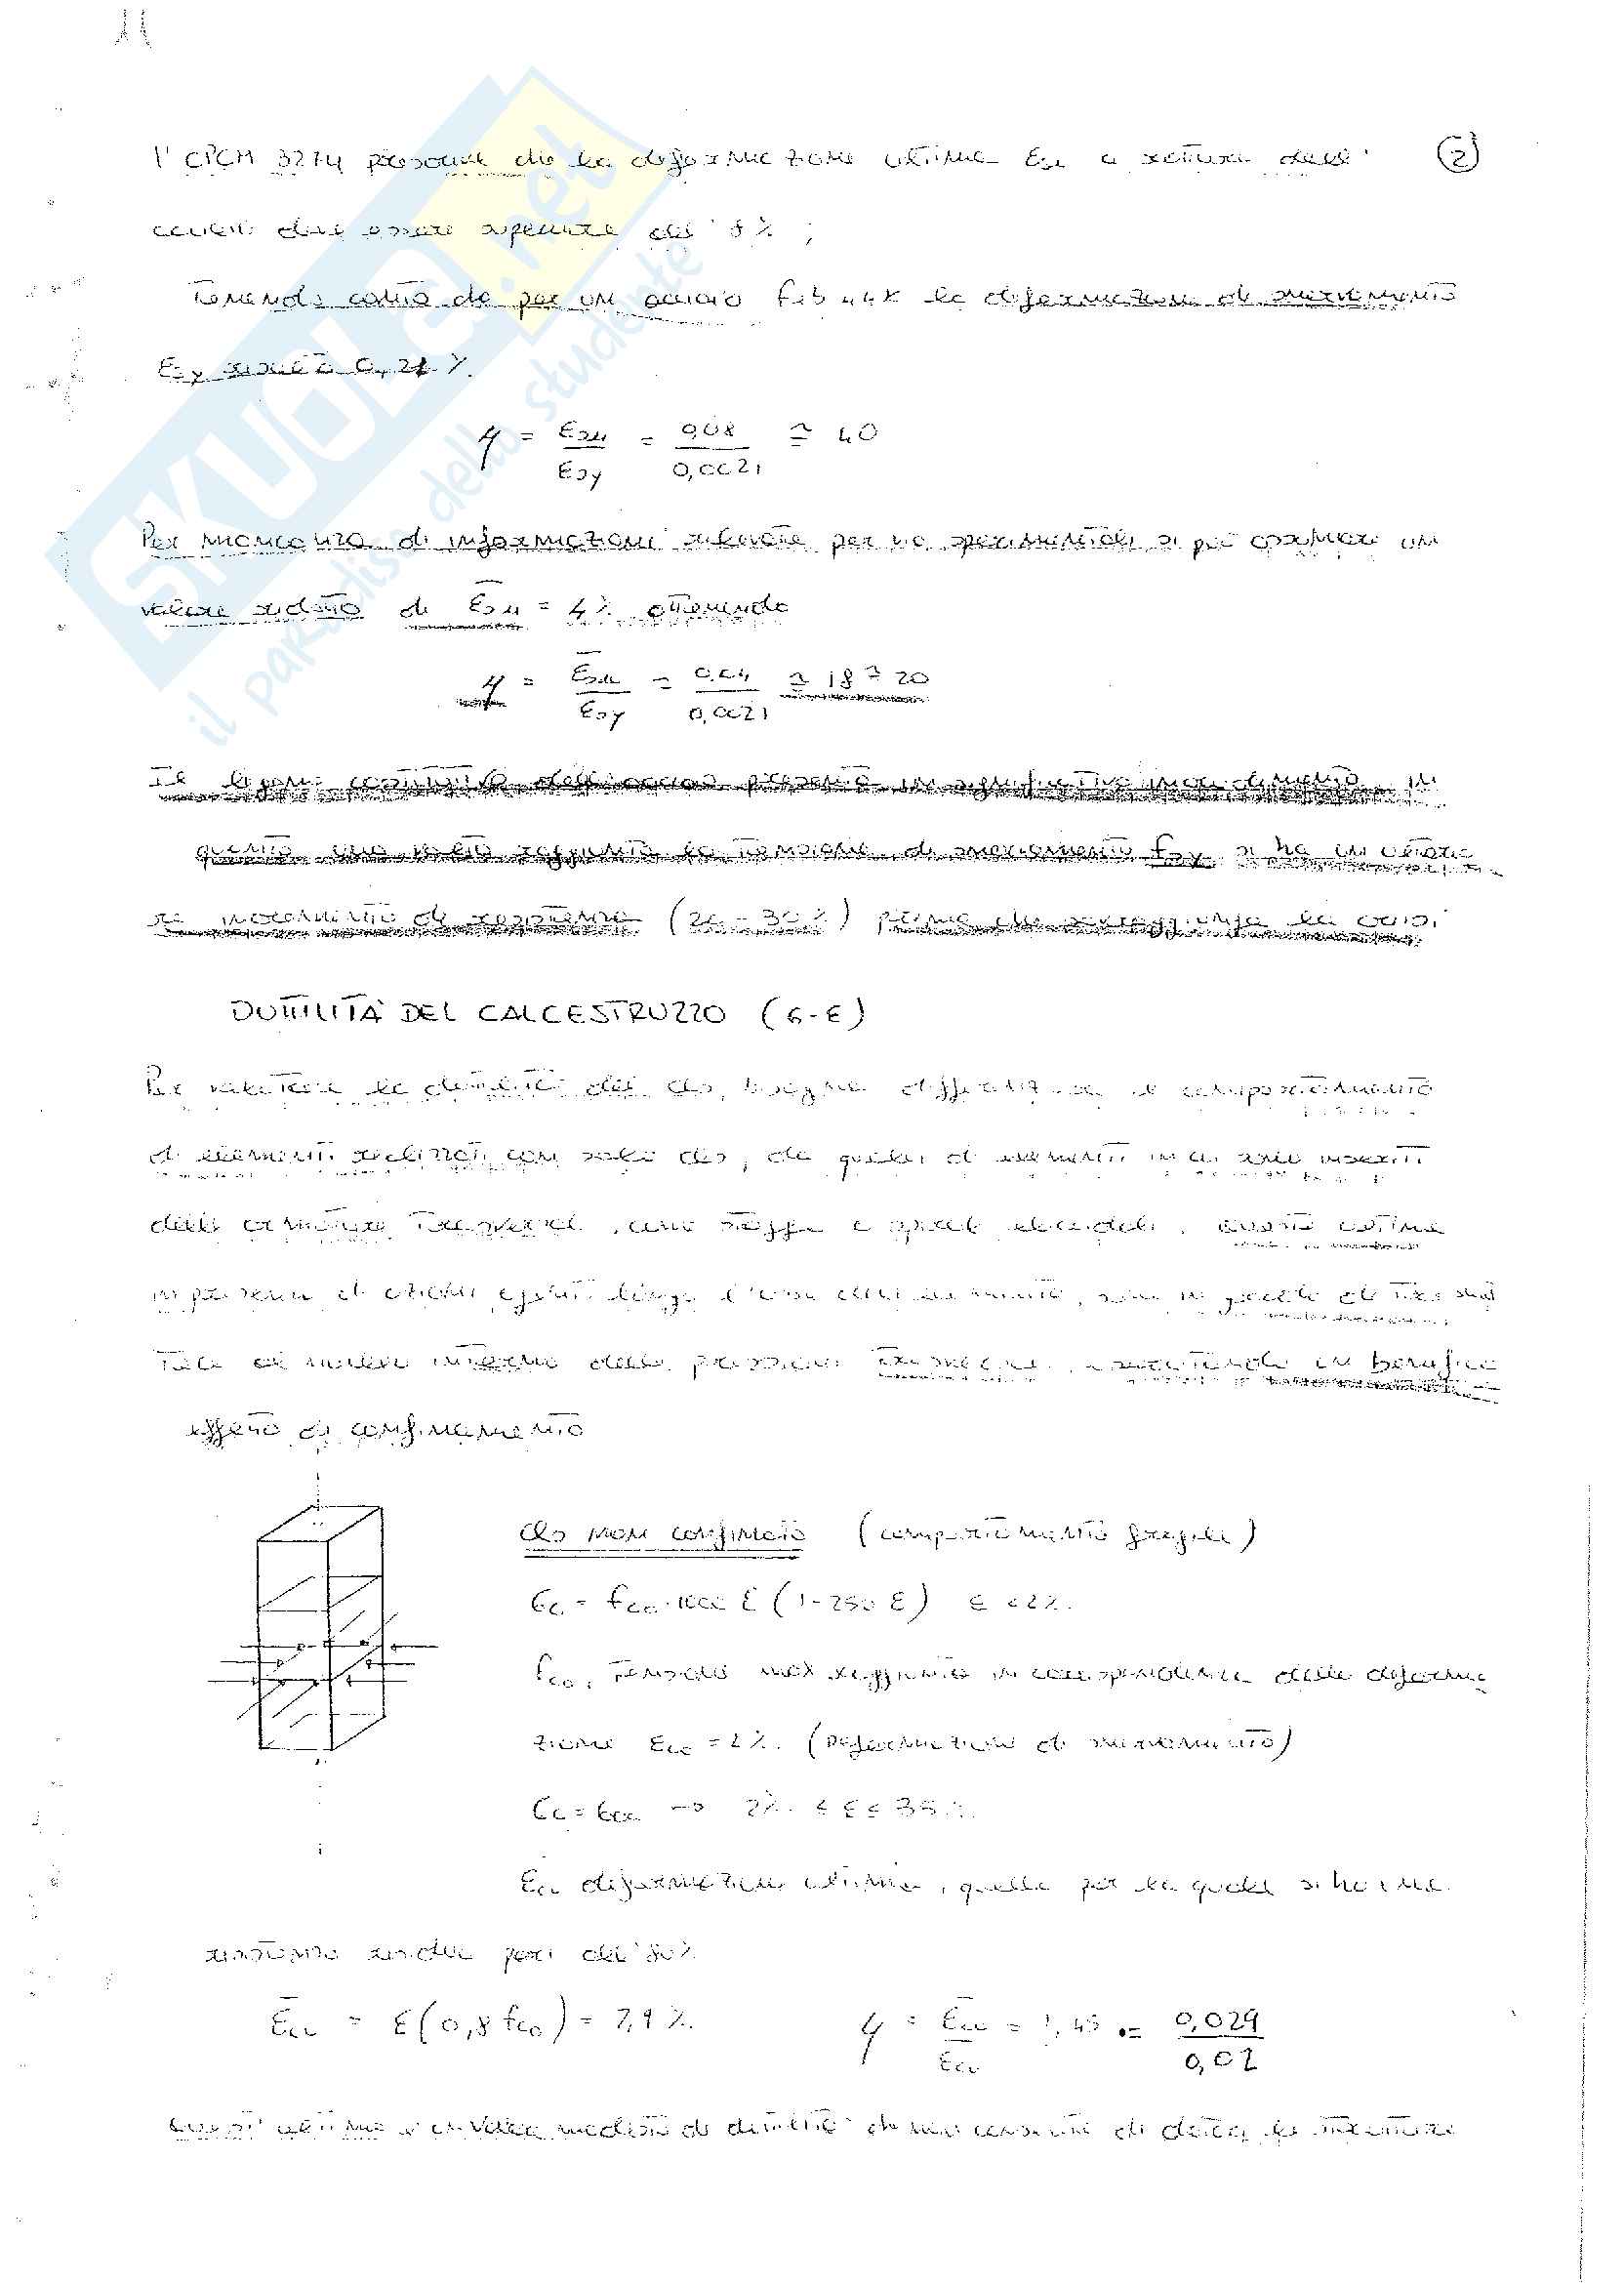 ②
l'OPCM 3274 prescrive che la deformazione ultima εsu a rottura dell'
acciaio deve essere superiore all' 8% ;
Tenendo conto che per un acciaio FeB44k la deformazione di snervamento
εsy 0,21 %.
η = εsu / εsy = 0,08 / 0,0021 ≅ 40
Per mancanza di informazioni rilevate per via sperimentale si può assumere un
valore ridotto di ε̄su = 4% ottenendo
η = ε̄su / εsy = 0,04 / 0,0021 ≅ 18 ÷ 20
Il legame costitutivo dell'acciaio presenta un significativo incrudimento, in
quanto una volta raggiunta la tensione di snervamento fsy, si ha un ulterio
re incremento di resistenza (20-30%) prima che sopraggiunga la crisi
DUTTILITÀ DEL CALCESTRUZZO (σ-ε)
Per valutare la duttilità del cls, bisogna differenziare il comportamento
di elementi realizzati con solo cls, da quello di elementi in cui sono inseriti
delle armature trasversali, come staffe e spirali elicoidali. Queste ultime
in presenza di azioni agenti lungo l'asse dell'elemento, sono in grado di trasmet
tere al nucleo interno delle pressioni trasversali, esercitando un benefico
effetto di confinamento
cls non confinato (comportamento fragile)
σc = fco·1000 ε (1-250 ε) ε <2‰
fco, tensione max raggiunta in corrispondenza della deforma
zione εco = 2‰ (deformazione di snervamento)
2‰ < ε < 3.5‰
εcu deformazione ultima, quella per la quale si ha una
resistenza residua pari all'80%
ε̄cu = ε(0,8 fco) = 2,9 ‰
η = ε̄cu / εco = 1,45 = 0,029 / 0,02
Quest'ultimo è un valore modesto di duttilità che non consente di dotare le strutture
il paradiso dello studente
SKUOLA.net